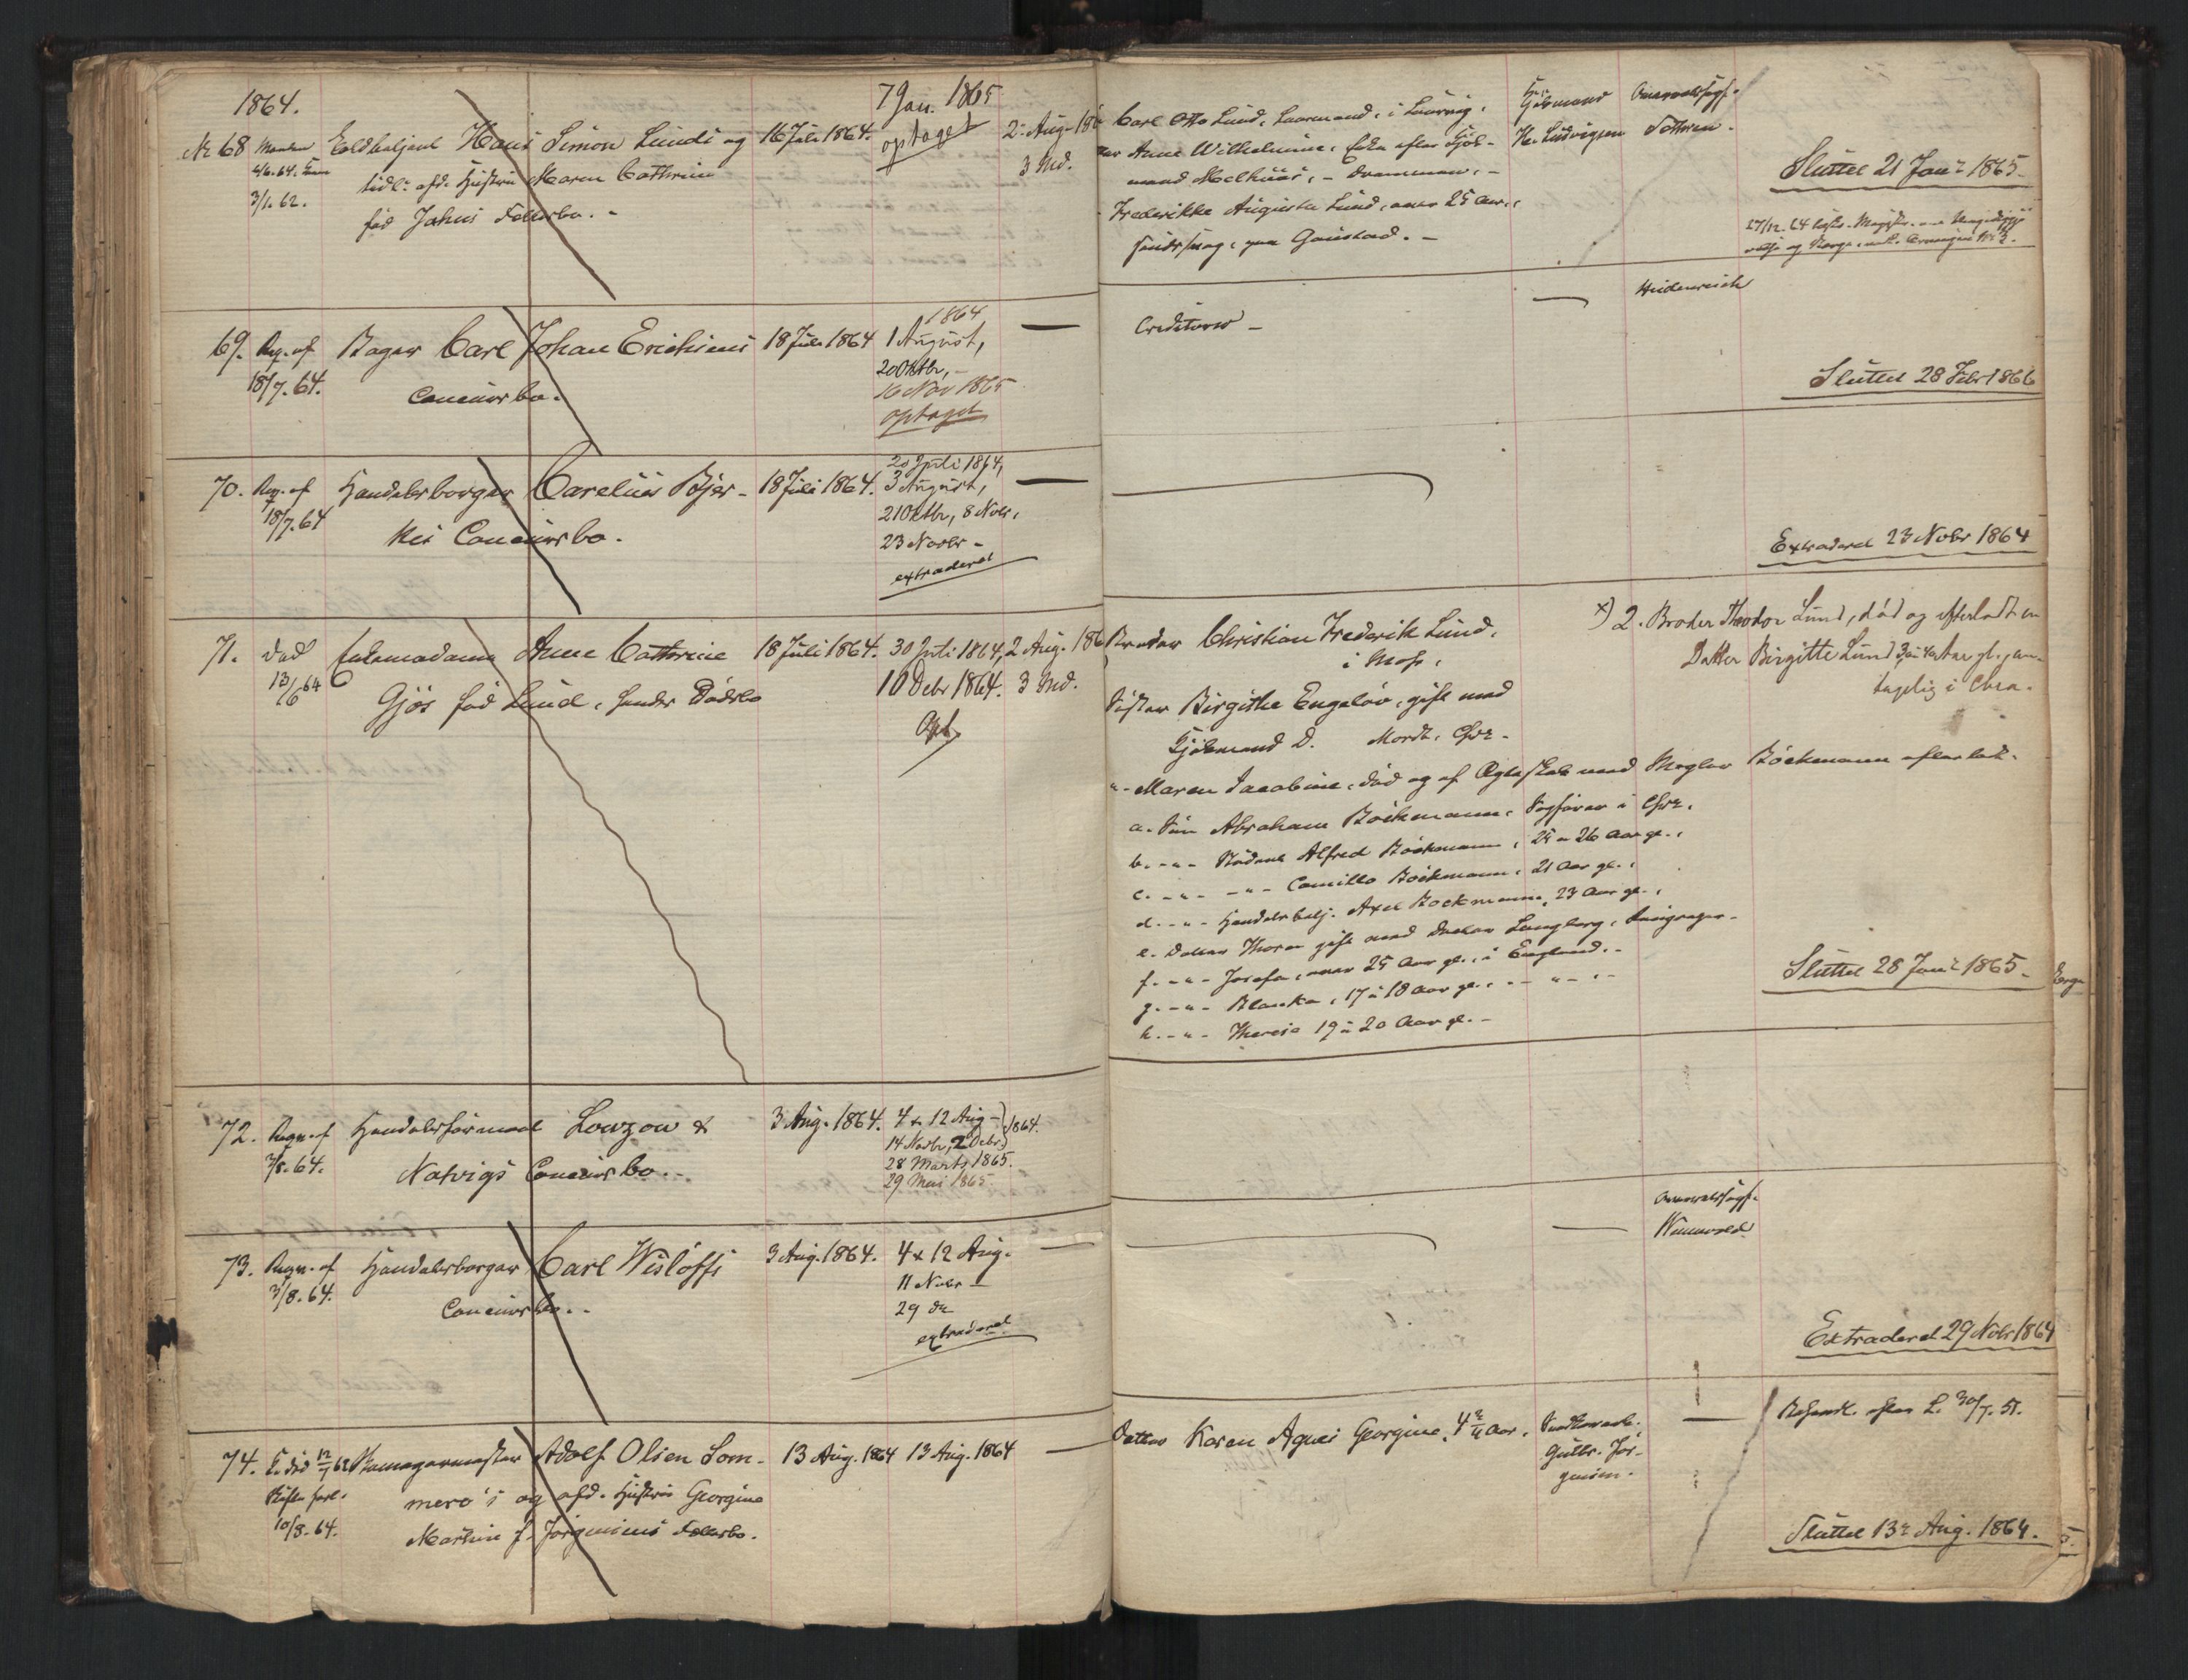 1864.
No 68 Manden 4/6. 64.
3/1. 62.
Hans Simon Lunds og
tidl. afd. Hustru Maren Cathrine
fød Jahns Fællesbo. -
16 Juli 1864.
7 Jan. 1865
optaget
2. Aug. 186
3 Md.
Carl Otto Lund, i Laurvig,
Anne Wilhelmine, Enke efter Skib-
mand Melhuus, - Drammen, -
Frederikke Augusta Lund, over 25 Aar,
paa Gaustad. -
H. Ludvigsen
Sluttet 21 Janr 1865.
27/12. 64
69. Req. af
18/7. 64.
Bager Carl Johan Erichsens
Concursbo.
18 Juli 1864
1864
1 August,
20 Oktbr, -
16 Nov 1865
optaget
Creditorer -
Heidenreich
Sluttet 28 Febr 1866
70. Req. af
18/7. 64
Handelsborger Carelius Bjer-
kes Concursbo.
18 Juli 1864.
20 Juli 1864,
3 August,
21 Oktbr, 8 Novr,
23 Novbr -
extraderet
Extraderet 23 Nobr 1864
71. Død
13/6 64
Enkemadame Anne Cathrine
Gjøs fød Lund, hendes Dødsbo
18 Juli 1864.
30 Juli 1864,
10 Debr 1864.
Opt
2 Aug. 186
3 Md.
Broder Christian Frederik Lund,
i Moss,
Søster Birgithe Engeløv, gift med
D. Mordt, Chra.
"- Maren Jacobine, død og af Ægteskab med Megler Böckmann efterladt.
a. Søn Abraham Böckmann, Sagfører i Chra.
b. -"- Student Alfred Böckmann, 25 a 26 Aar gl.,
c. -"- -"- Camillo Böckmann, 21 Aar gl.,
d. -"- Handelsbetj. Axel Bockmann, 23 Aar gl.,
e. Datter Thora gift med Doktor Langberg,
f. -"- Josefa, over 25 Aar gl., i England. -
g. -"- Blanka, 17 a 18 Aar gl., - " -
h. -"- Theresa 19 a 20 Aar gl. -
x) 2. Broder Theodor Lund, død og efterladt en
Datter Birgitte Lund 3 a 4 Aar gl., an-
tagelig i Chra.
Sluttet 28 Janr 1865.
72. Reqv. af
3/8. 64.
Handelsfirmaet Lowzow &
Natvigs Concursbo. -
3 Aug. 1864.
4 & 12 Aug - 1864.
14 Novbr, 2 Debr
28 Marts 1865.
29 Mai 1865
73. Reqv. af
3/8. 64.
Handelsborger Carl Wisløffs
Concursbo. -
3 Aug. 1864.
4 & 12 Aug.
11 Nobr -
29 do
extraderet
Overretssagf.
Extraderet 29 Nobr 1864
74.
10/8. 64.
Adolf Olsen Som-
mero's og afd. Hustru Georgine
Martine f. Jørgensens Fællesbo.
13 Aug. 1864
13 Aug. 1864
Datter Karen Agnes Georgine, 4 3/4 Aar,
Gulbr. Jør-
gensen.
Behandl. efter L. 30/7. 51.
Sluttet 13de Aug. 1864.